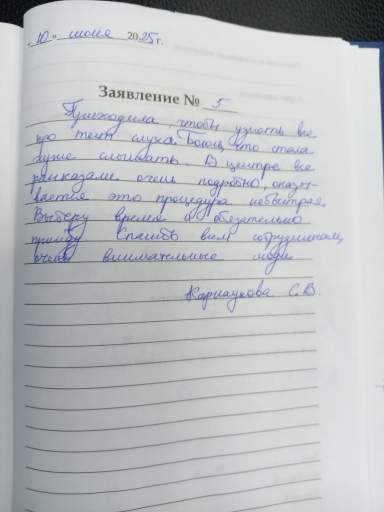 „10" июня 2025 г.
Заявление № 5
Приходила, чтобы узнать все
про тест слуха. Боюсь, что стала
хуже слышать. В центре все
рассказали очень подробно, оказы-
вается это процедура небыстрая.
Выберу время и обязательно
приду. Спасибо всем сотрудникам,
очень внимательные люди.
Карнаухова С.В.